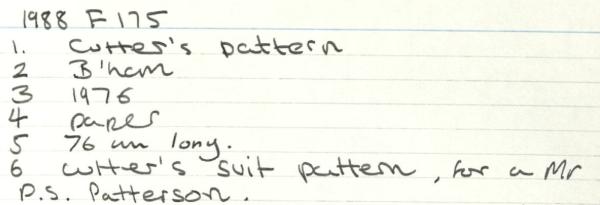 1988 F 175
1. Cutter's pattern
2 B'ham
3 1976
4 paper
5 76 cm long.
6 cutter's suit pattern, for a Mr
P.S. Patterson.